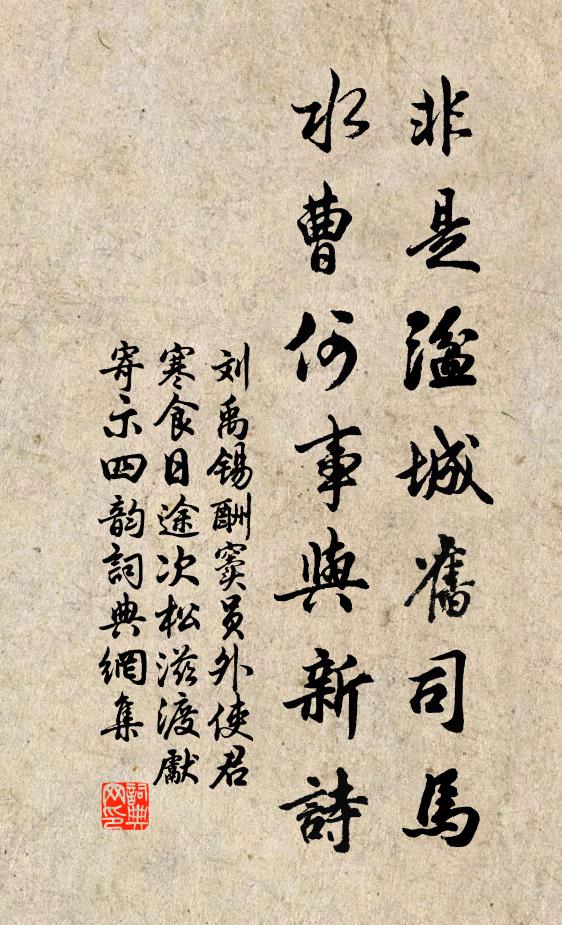 非是湓城舊司馬
水曹何事與新詩
刘禹锡酬窦员外使君
寒食日途次松滋渡獻
寄示四韵詞典網集
詞典
网印